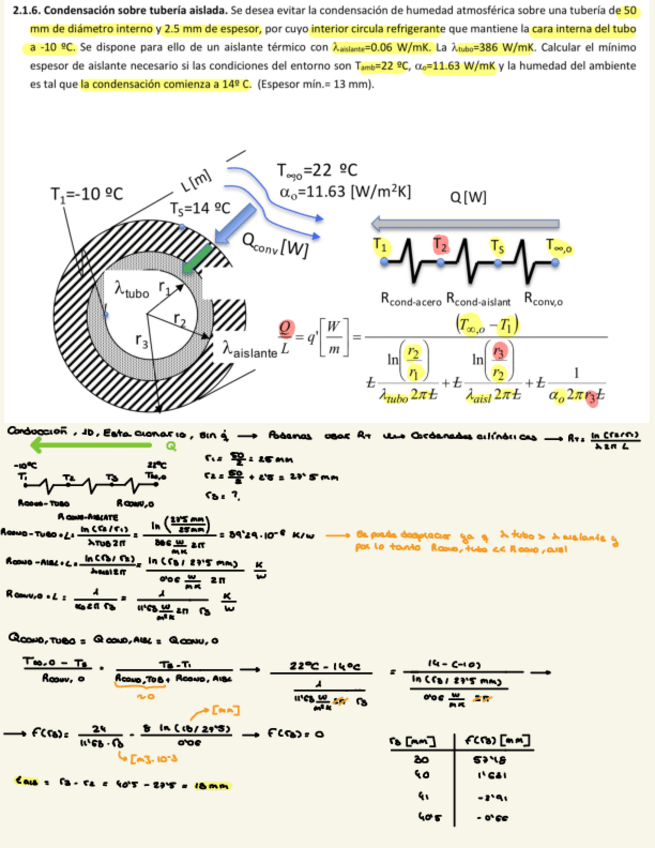 2.1.6. Condensación sobre tubería aislada. Se desea evitar la condensación de humedad atmosférica sobre una tubería de 50
mm de diámetro interno y 2.5 mm de espesor, por cuyo interior circula refrigerante que mantiene la cara interna del tubo
a -10 ºC. Se dispone para ello de un aislante térmico con λaislante=0.06 W/mK. La λtubo=386 W/mK. Calcular el mínimo
espesor de aislante necesario si las condiciones del entorno son Tamb=22 ºC, αo=11.63 W/mK y la humedad del ambiente
es tal que la condensación comienza a 14º C. (Espesor mín.= 13 mm).
T1=-10 ºC
L[m]
TS=14 ºC
T∞,o=22 ºC
αo=11.63 [W/m²K]
Qconv[W]
Q[W]
T1 T2 Ts T∞,o
Rcond-acero Rcond-aislant Rconv,o
λtubo r1
r2
r3
λaislante
Q/L = q' [W/m] = (T∞,o − T1) / (Ł ln(r2/r1)/(λtubo 2πŁ) + Ł ln(r3/r2)/(λaisl 2πŁ) + Ł 1/(αo 2πr3Ł))
Conducción, 1D, Estacionario, sin q̇ → Podemos usar RT Coordenadas cilíndricas → RT= ln(r2/r1)/λ2πL
Q
-10ºC 22ºC
T1 T2 T3 T∞,o
Rcond-tubo Rconv,o
Rcond-aislante
r1= 50/2 = 25 mm
r2= 50/2 + 2'5 = 27'5 mm
r3= ?
Rcond-tubo·L= ln(r2/r1)/λtub 2π = ln(27'5 mm/25mm)/(386 W/mK 2π) = 39'29·10⁻⁶ K/W → Se puede despreciar ya q λ tubo > λ aislante y
por lo tanto Rcond,tubo << Rcond,aisl
Rcond-aisl·L= ln(r3/r2)/λaisl2π = ln(r3/27'5 mm)/(0'06 W/mK 2π) K/W
Rconv,o·L= 1/α02π r3 = 1/(11'63 W/m²K 2π r3) K/W
Qcond,tubo = Qcond,aisl = Qconv,o
(T∞,o − T3)/Rconv,o = (T3-T1)/(Rcond,tub + Rcond,aisl) → (22ºC − 14ºC)/(1/(11'63 W/m²K 2π r3)) = (14-(-10))/(ln(r3/27'5 mm)/(0'06 W/mK 2π)) →
≈0
→ f(r3)= 24/(11'63·r3) − 8 ln(r3/27'5)/0'06 → f(r3)=0
[mm]
[m]·10-3
eais = r3 - r2 = 40'5 − 27'5 = 13mm
r3 [mm] f(r3) [mm]
30
40 1'681
41 -2'91
40'5 -0'66